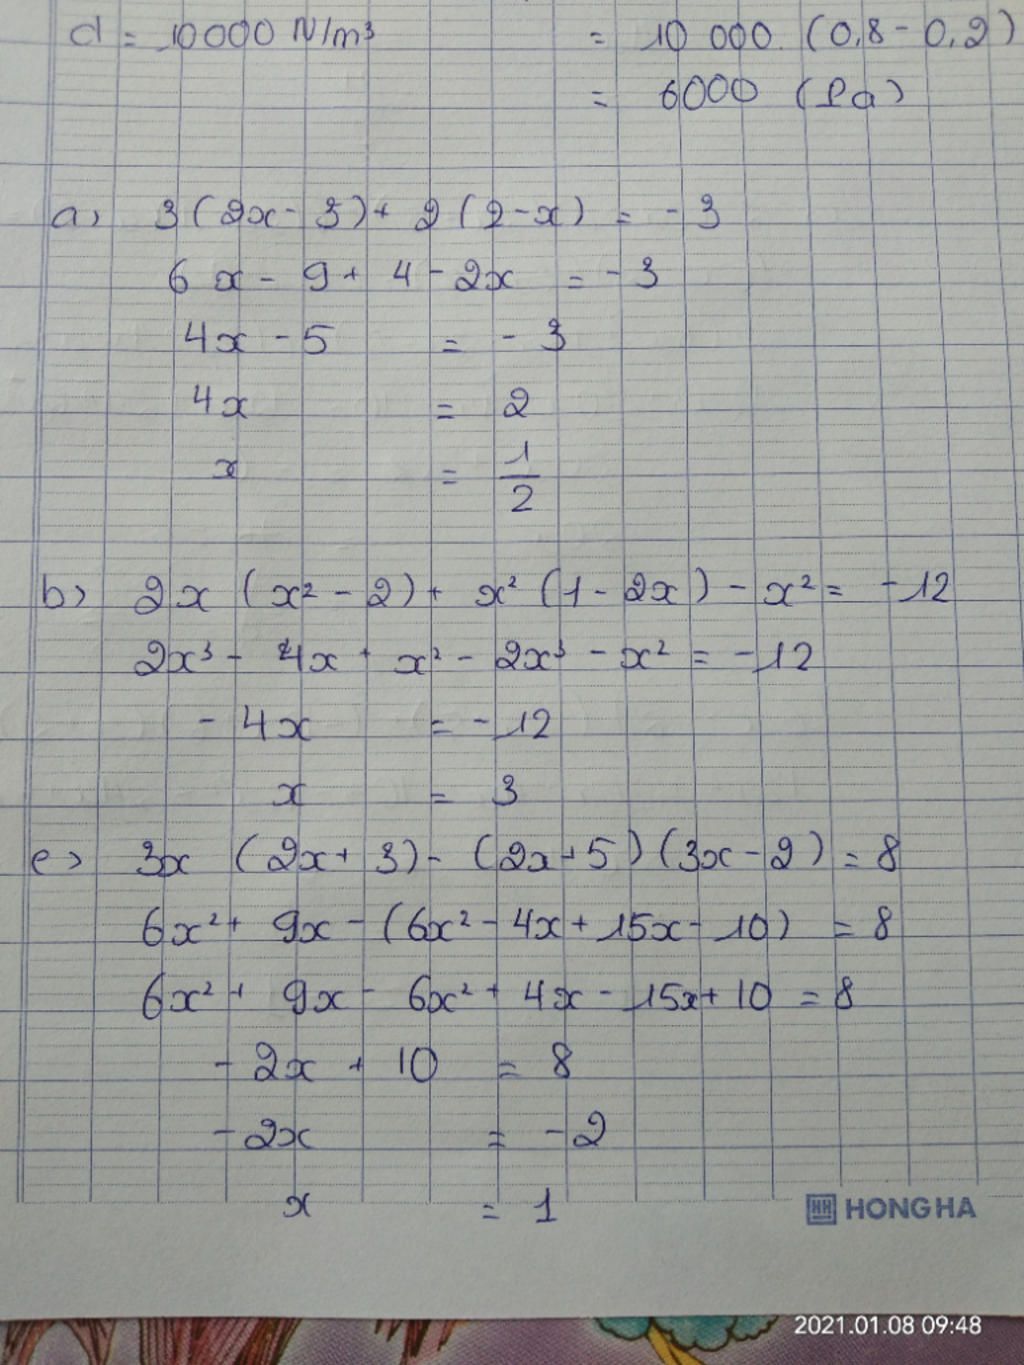 d = 10000 N/m³ = 10 000. (0,8 - 0,2)
= 6000 (Pa)
a) 3(2x - 3) + 2(2 - x) = -3
6x - 9 + 4 - 2x = -3
4x - 5 = -3
4x = 2
x = 1/2
b) 2x (x² - 2) + x² (1 - 2x) - x² = -12
2x³ - 4x + x² - 2x³ - x² = -12
-4x = -12
x = 3
c) 3x (2x + 3) - (2x + 5)(3x - 2) = 8
6x² + 9x - (6x² - 4x + 15x - 10) = 8
6x² + 9x - 6x² + 4x - 15x + 10 = 8
-2x + 10 = 8
-2x = -2
x = 1
HONG HA
2021.01.08 09:48